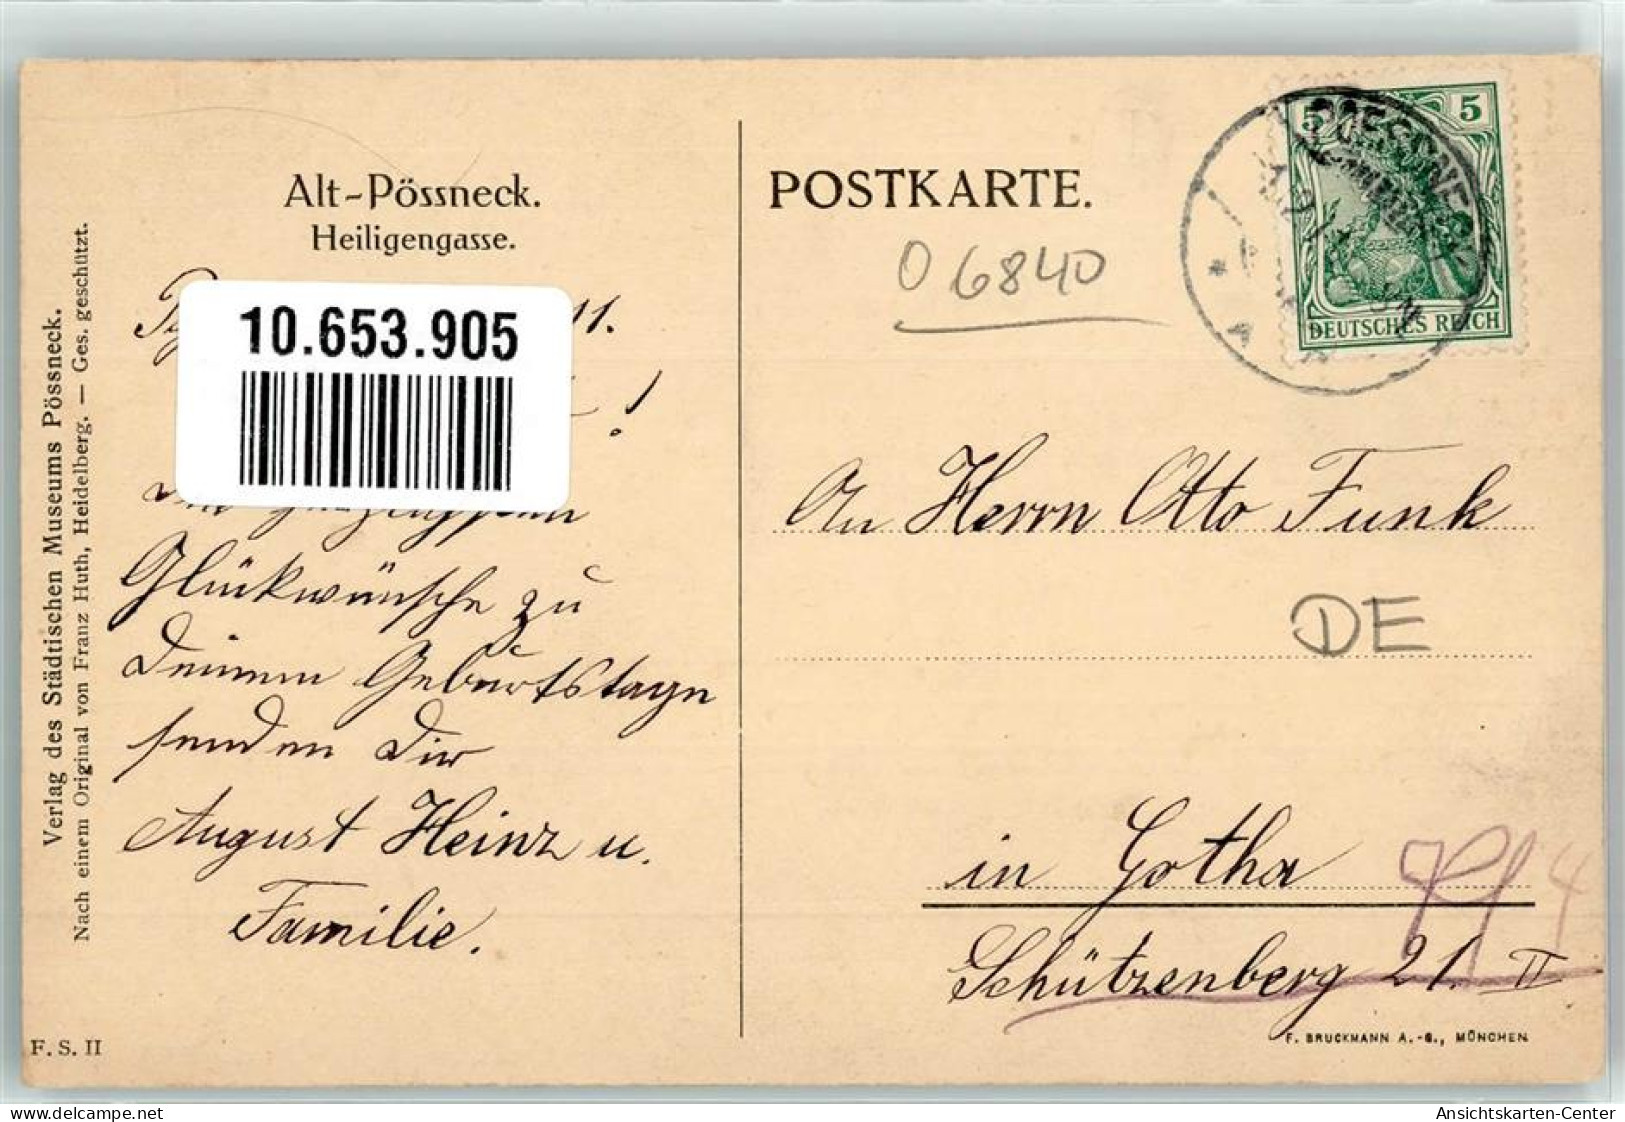 Alt-Pössneck.
Heiligengasse.
Verlag des Städtischen Museums Pössneck.
Nach einem Original von Franz Huth, Heidelberg. — Ges. geschützt.
11.
!
10.653.905
Glückwünsche zu
Deinem Geburtstage
senden Dir
August Heinz u.
Familie.
F. S. II
POSTKARTE.
06840
POESSNECK
5 5
DEUTSCHES REICH
An Herrn Otto Funk
DE
in Gotha
Schützenberg 21. II
F. BRUCKMANN A.-G., MÜNCHEN
delcampe.net
Ansichtskarten-Center